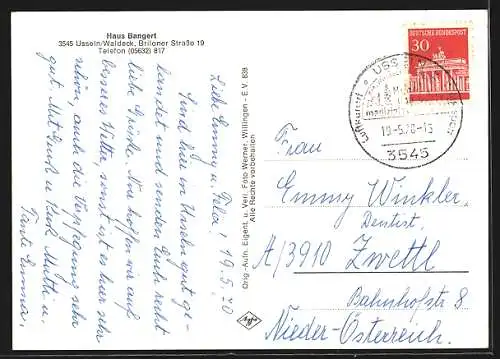 Haus Bangert
3545 Usseln/Waldeck, Briloner Straße 19
Telefon (05632) 817
19.5.70
Liebe Emmy u. Felix!
Sind hier in Usseln gut ge-
landet und senden Euch recht
liebe Grüße. Nur hoffen wir auf
besseres Wetter, sonst ist es hier sehr
schön, auch die Verpflegung sehr
gut. Mit Gruß u. Kuß Mutti u.
Tante Emma.
Orig.-Aufn. Eigent. u. Verl. Foto Werner, Willingen - E.V. 839
Alle Rechte vorbehalten
Agfa
DEUTSCHE BUNDESPOST
30
USS
Luftkurort
19.-5.70-15
3545
Frau
Emmy Winkler
Dentist,
A/3910 Zwettl
Bahnhofstr. 8
Nieder-Österreich.